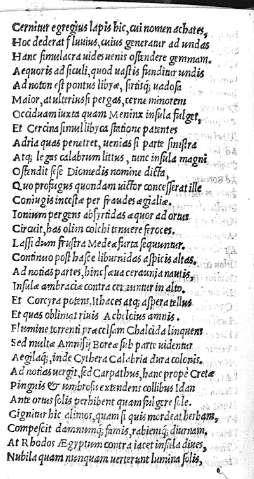 Cernitur egregius lapis hic, cui nomen achates,
Hoc dederat fluuius, cuius generatur ad undas
Hanc simulacra uides uenis ostendere gemmam.
Aequoris ad siculi, quod uastis funditur undis
Ad noton est pontus libyæ, sirtisq; uadosa
Maior, at ulterius si pergas, cerne minorem
Occiduam iuxta quam Meninx insula fulget,
Et Cercina simul libyca statione patentes
Adria quas penetret, uenias si parte sinistra
Atq; legas calabrum littus, tunc insula magni
Ostendit sese Diomedis nomine dicta,
Quo profugus quondam uictor concesserat ille
Coniugis incestæ per fraudes ægialiæ.
Ionium pergens absyrtidas æquor ad ortus
Circuit, has olim colchi tenuere feroces.
Lassi dum frustra Medeæ furta sequuntur.
Continuo post hasce liburnidas aspicis altas.
Ad notias partes, hinc sæua ceraunia nauis,
Insulæ ambraciæ contra cernuntur in alto.
Et Corcyra potens, Ithaces atq; aspera tellus
Et quas obliquat riuis Acheloius amnis.
Flumine torrenti præcelsam Chalcida linquens
Sed multæ Amnisij Boreæ sub parte uidentur
Aegilaq;, inde Cythera Calabria dura colonis.
Ad notias uergit, sed Carpathus, hanc prope Cretæ
Pinguis & umbrosis extendens collibus Idan
Ante ortus solis perhibent quam fulgere sole.
Gignitur hic alimos, quam si quis mordeat herbam,
Compescit damnumq; famis, rabiemq; diurnam,
At Rhodos Ægyptum contra iacet insula diues,
Nubila quam nunquam uerterunt lumina solis,